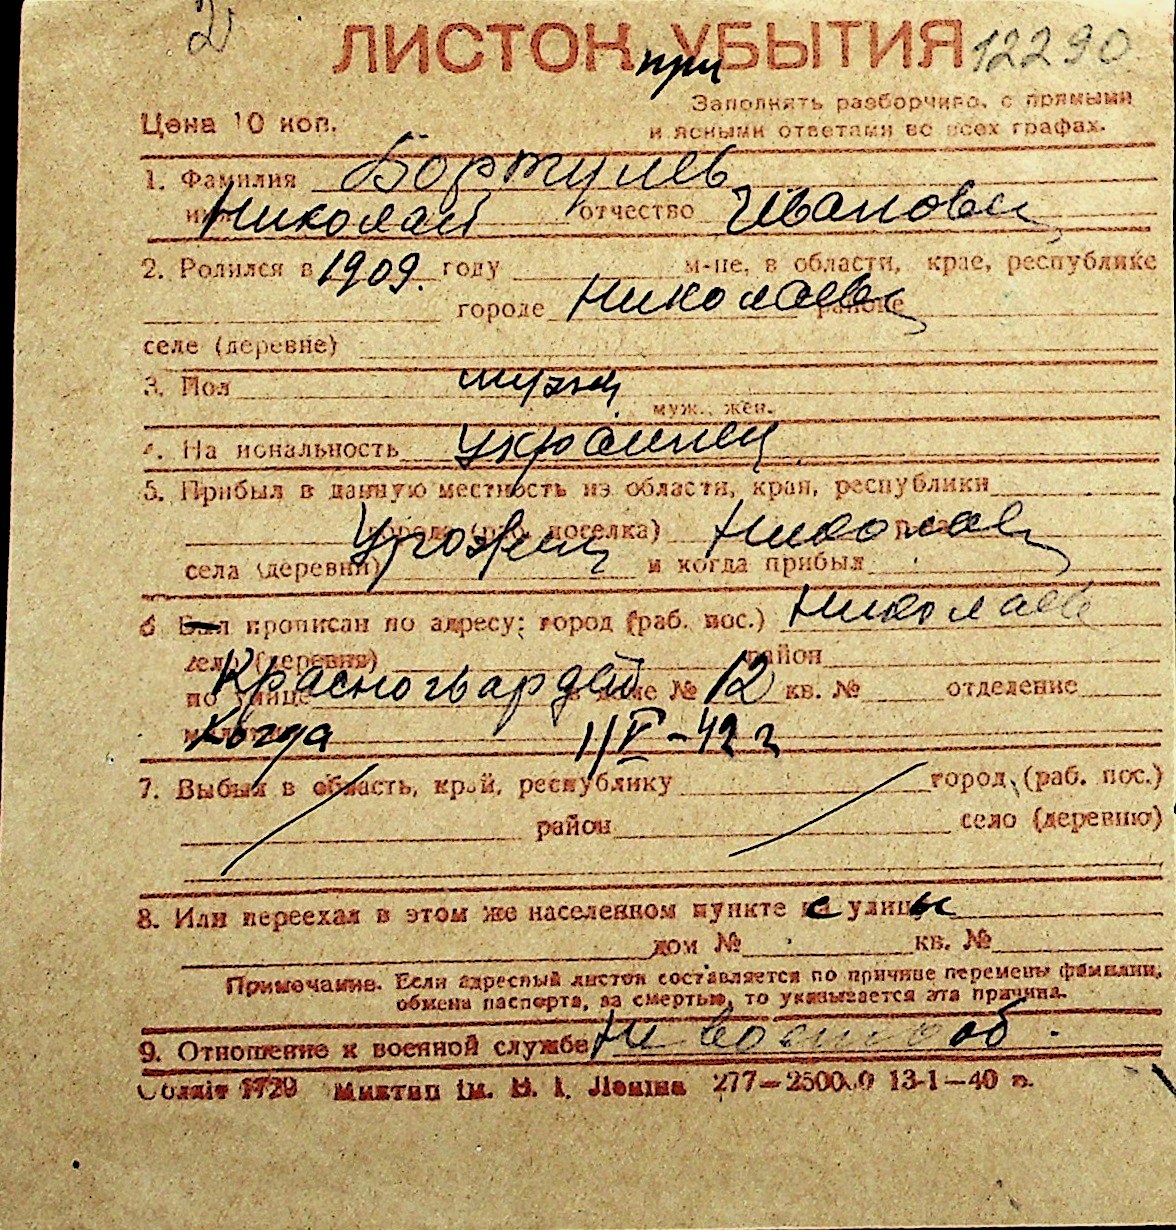 2
ЛИСТОК УБЫТИЯ 12290
при
Заполнять разборчиво, с прямыми
Цена 10 коп.
и ясными ответами во всех графах.
1. Фамилия
имя Николай отчество Иванович
2. Родился в 1909. году м-це, в области, крае, республике
городе Николаев районе
селе (деревне)
3. Пол муж
муж., жен.
4. На иональность Украинец
5. Прибыл в данную местность из области, края, республики
города (раб. поселка) Николаев
Урожен
села (деревни) и когда прибыл
6 Был прописан по адресу: город (раб. пос.) Николаев
село (деревня) район
по улице Красногвардей в доме № 12 кв. № отделение
милиции Когда 11/V-42 г
7. Выбыл в область, край, республику город, (раб. пос.)
район село (деревню)
8. Или переехал в этом же населенном пункте с улицы
дом № кв. №
Примечание. Если адресный листок составляется по причине перемены фамилии,
обмена паспорта, за смертью, то указывается эта причина.
9. Отношение к военной службе
Миктип ім. В. І. Леніна 277—25000.0 13-1—40 р.